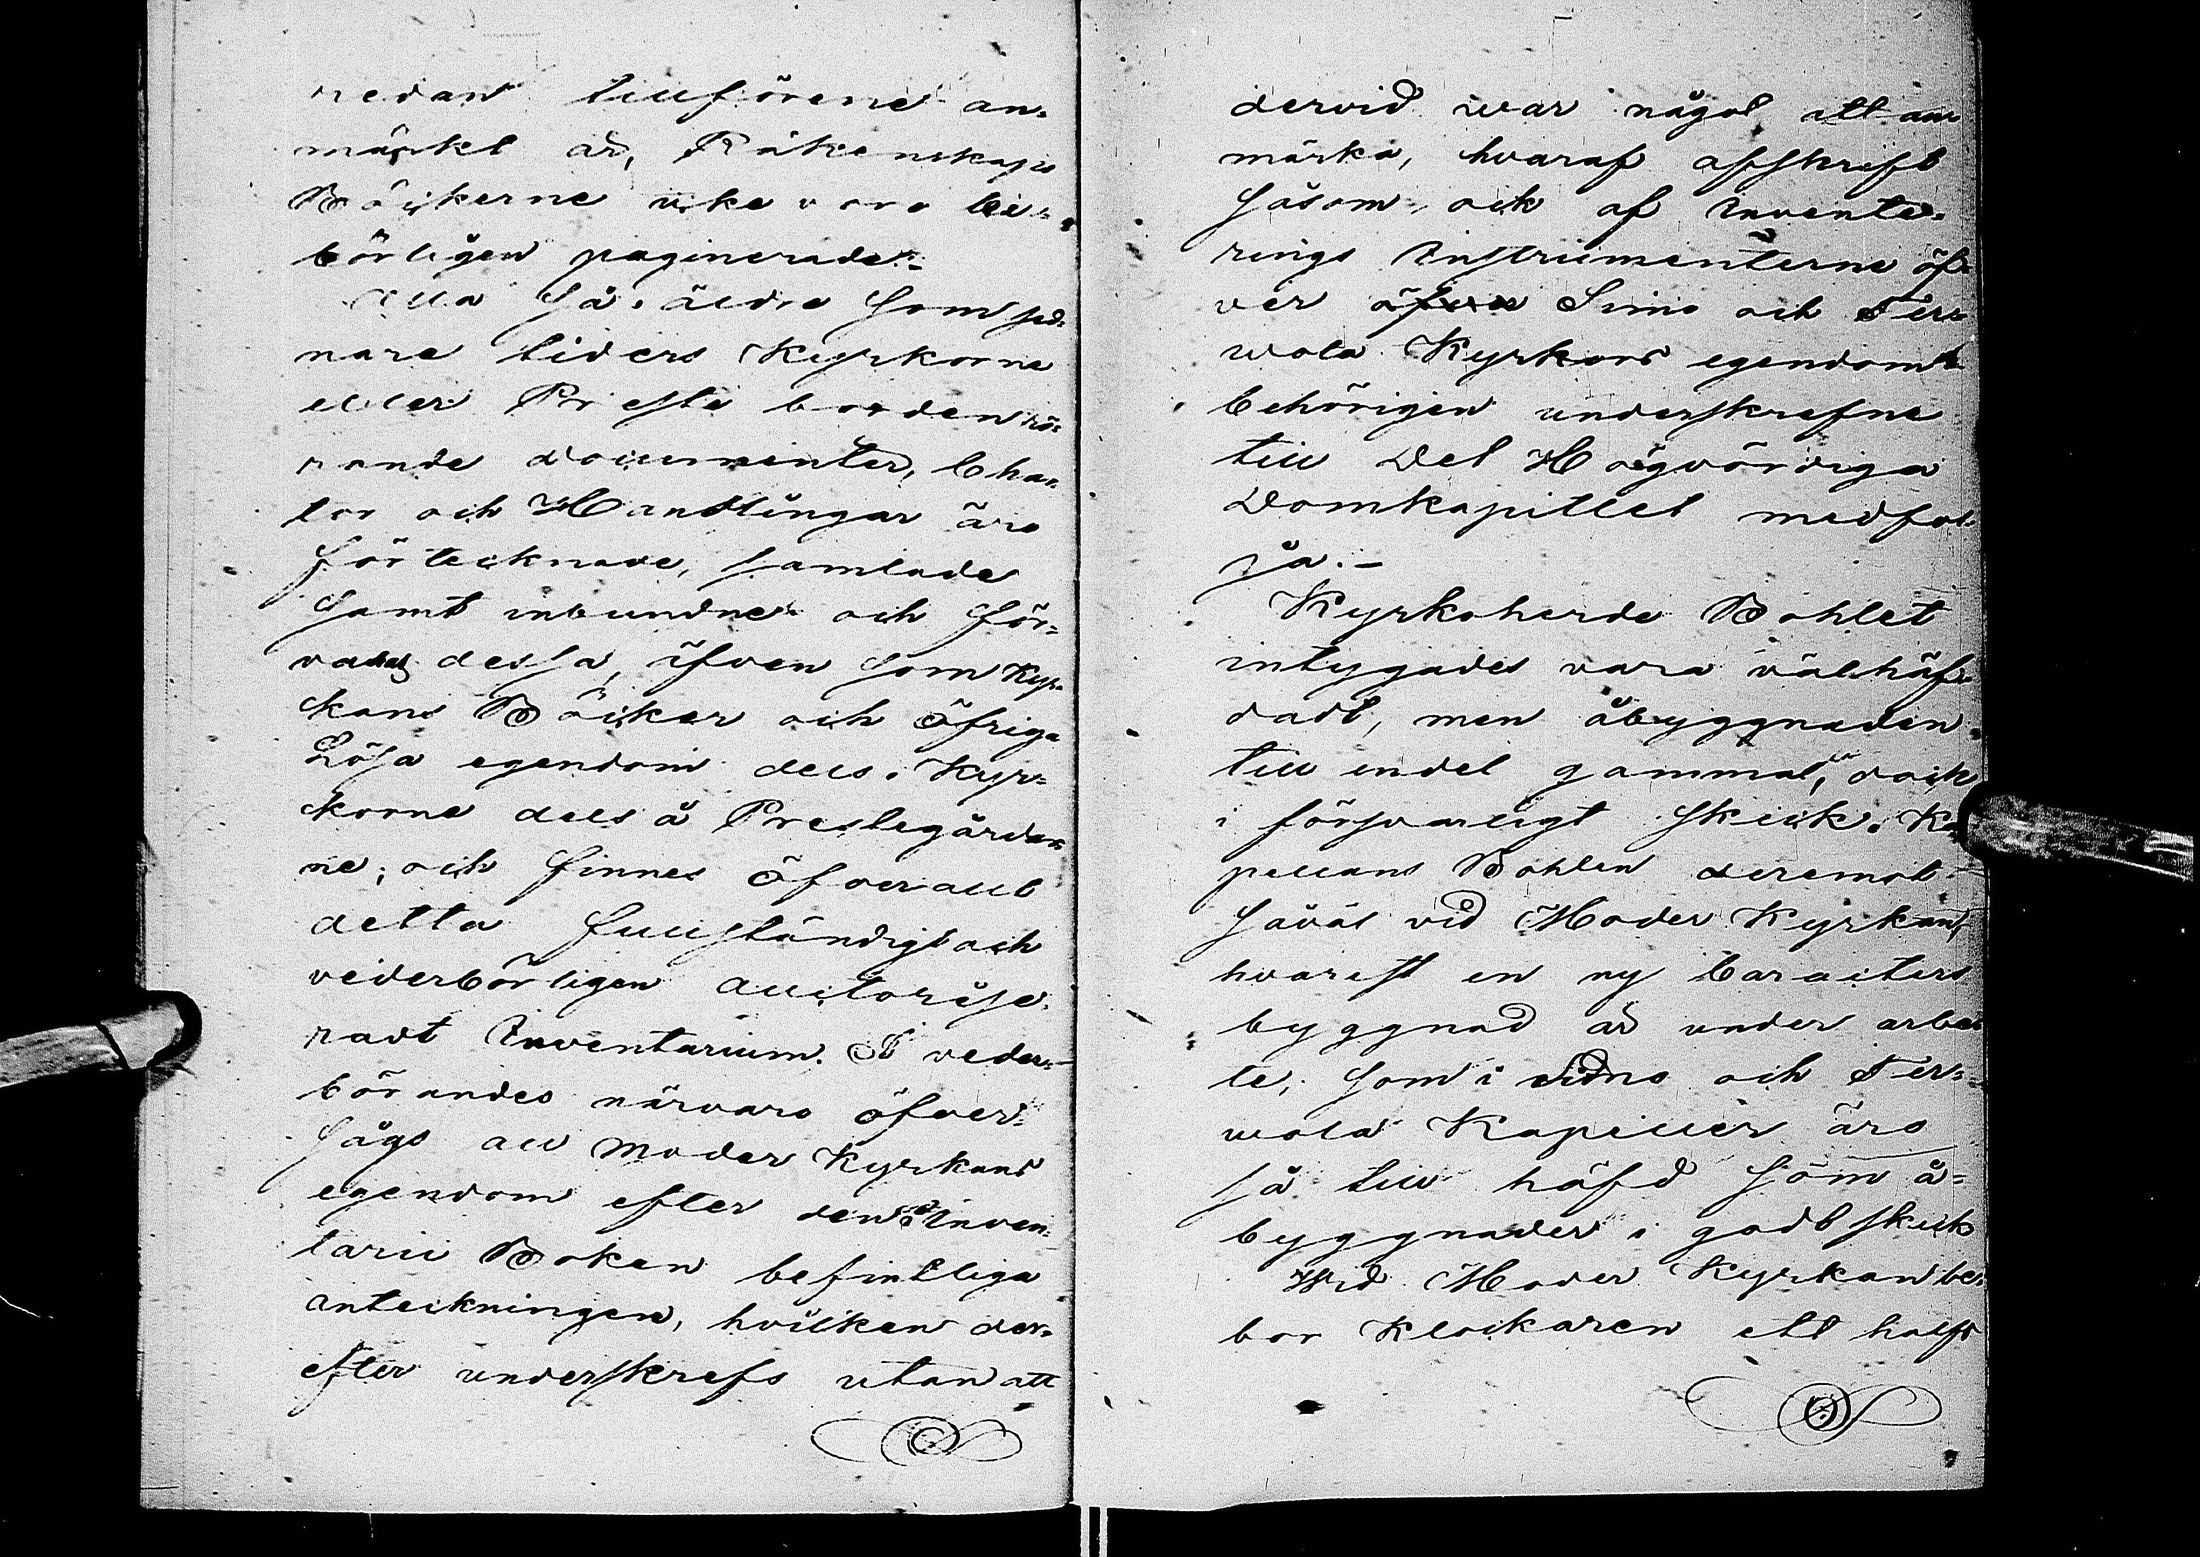 redan tillförene an-
märkt är, Räkenskaps
Böckerne icke vara be-
börligen paginerade.
Alla så äldre som sed-
nare tiders Kyrkorne
eller Preste borden rö-
rande documenter, Char-
tor och Handlingar äro
förtecknade, samlade
samt inbundne och för-
varas dessa, äfven som Kyr-
kans Böcker och öfriga
Lösa egendom dels i Kyr-
korne dels å Prestegårdar-
ne; och finnes öfver allt
detta fullständigt och
vederbörligen auctorise-
radt Inventarium. I veder-
börandes närvaro öfver-
sågs all Moder Kyrkans
egendom efter den i Inven-
tarii Boken befintliga
anteckningen, hvilken der-
efter underskrefs utan att
dervid war något att an-
märka, hvaraf afskrift
såsom och af Invente-
rings Instrumenterne öf-
ver Simo och Ter-
wola Kyrkors egendom
behörigen underskrefne
till Det Högvördiga
Domkapitlet medföl-
ja.-
Kyrkoherde Bohlet
intygades vara välhäf-
dadt, men åbyggnaden
till endel gammal, dock
i försvarligt skick. Ka-
pellans Bohlen deremot
såväl vid Moder Kyrkan,
hvarest en ny Caracters
byggnad är under arbe-
te, som i Simo och Ter-
wola Kapeller äro
så till häfd som å-
byggnader i godt skick
Wid Moder Kyrkan be-
bor Klockaren ett halft